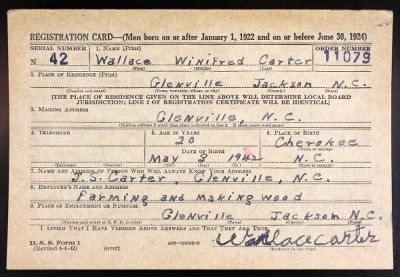 REGISTRATION CARD—(Men born on or after January 1, 1922 and on or before June 30, 1924)
SERIAL NUMBER 1. NAME (Print) ORDER NUMBER
N 42 Wallace Winifred Carter 11079
(First) (Middle) (Last)
2. PLACE OF RESIDENCE (Print)
Glenville Jackson N.C.
(Number and street) (Town, township, village, or city) (County) (State)
[THE PLACE OF RESIDENCE GIVEN ON THE LINE ABOVE WILL DETERMINE LOCAL BOARD
JURISDICTION; LINE 2 OF REGISTRATION CERTIFICATE WILL BE IDENTICAL]
3. MAILING ADDRESS
Glenville, N.C.
[Mailing address if other than place indicated on line 2. If same insert word same]
4. TELEPHONE 5. AGE IN YEARS 6. PLACE OF BIRTH
20 Cherokee
DATE OF BIRTH (Town or county)
May 3 1942 N.C.
(Exchange) (Number) (Mo.) (Day) (Yr.) (State or country)
7. NAME AND ADDRESS OF PERSON WHO WILL ALWAYS KNOW YOUR ADDRESS
J.S. Carter, Glenville, N.C.
8. EMPLOYER'S NAME AND ADDRESS
Farming and Making Wood
9. PLACE OF EMPLOYMENT OR BUSINESS
Glenville Jackson N.C.
(Number and street or R. F. D. number) (Town) (County) (State)
I AFFIRM THAT I HAVE VERIFIED ABOVE ANSWERS AND THAT THEY ARE TRUE.
D. S. S. Form 1 Wallace carter
(Revised 6-9-42) (over)